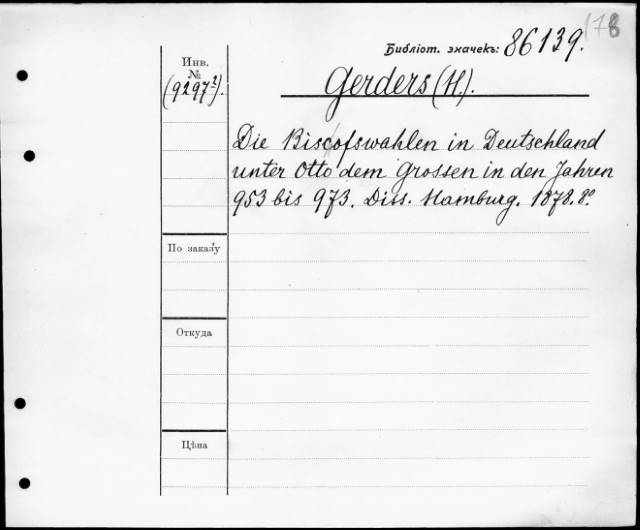 178
Библіот. значекъ: 86139.
Инв.
№
(9297²).
Gerders (H.).
Die Biscofswahlen in Deutschland
unter Otto dem Grossen in den Jahren
953 bis 973. Diss. Hamburg. 1878. 8º.
По заказу
Откуда
Цѣна